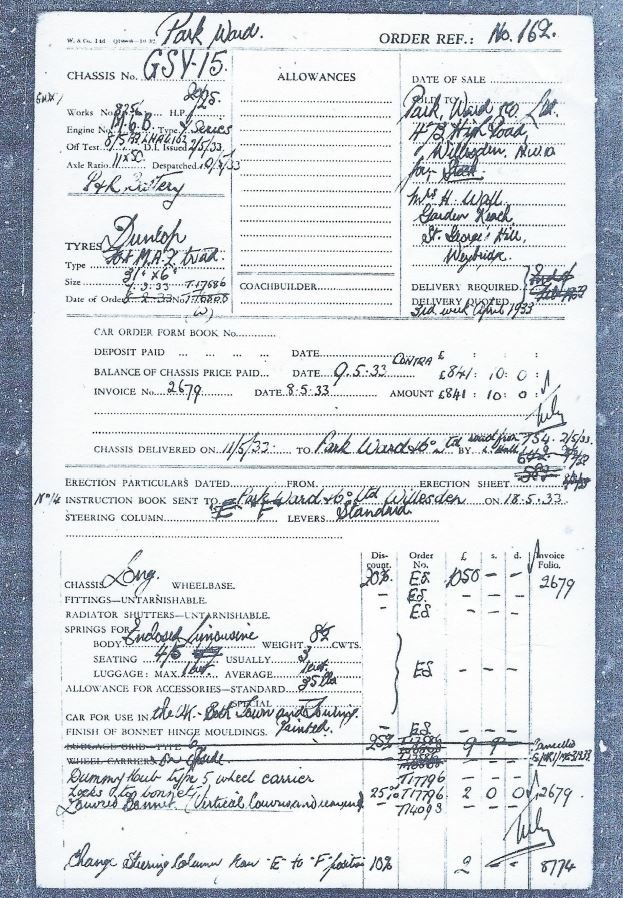 Park Ward.
W. & Co. Ltd
ORDER REF.: No. 162.
CHASSIS No. GSY-15.
ALLOWANCES
DATE OF SALE
20/25
SOLD TO
Works No. 8256 H.P.
Park, Ward & Co. Ltd.
Engine No. M.6.B. Type Series
473 High Road,
Off Test D.I. Issued 2/5/33.
Willesden, N.W.10
Axle Ratio 11 x 50 Despatched 10/5/33
for Stock
P&R Battery
Mrs H. Wall
Garden Reach
St. George's Hill,
Weybridge.
TYRES Dunlop
Type Fort M.A.Z. triad.
Size
COACHBUILDER
DELIVERY REQUIRED
Date of Order
DELIVERY QUOTED
3rd week April 1933
CAR ORDER FORM BOOK No.
DEPOSIT PAID ... ... ... DATE CONTRA £ : :
BALANCE OF CHASSIS PRICE PAID DATE 9.5.33 £841 : 10 : 0 :
INVOICE No. 2679 DATE 8.5.33 AMOUNT £841 : 10 : 0 :
CHASSIS DELIVERED ON 11/5/33 TO Park Ward & Co Ltd BY
754. 2/5/33.
ERECTION PARTICULARS DATED FROM ERECTION SHEET
INSTRUCTION BOOK SENT TO Park Ward & Co Ltd Willesden ON 18.5.33.
STEERING COLUMN F LEVERS Standard
Discount. Order No. £ s. d. Invoice Folio.
CHASSIS Long. WHEELBASE. 20% Ed. 1050 - - 2679
FITTINGS—UNTARNISHABLE. - Ed. - - -
RADIATOR SHUTTERS—UNTARNISHABLE. - Ed - - -
SPRINGS FOR
BODY Enclosed Limousine WEIGHT 8½ CWTS.
SEATING 4/5 USUALLY 3
LUGGAGE: MAX. 1 cwt. AVERAGE 1 cwt. - Ed - - -
ALLOWANCE FOR ACCESSORIES—STANDARD 35 lbs
SPECIAL
CAR FOR USE IN the UK - Both Town and Touring.
FINISH OF BONNET HINGE MOULDINGS. Painted. - Ed - - -
LUGGAGE GRID—TYPE 6 25% Cancelled
WHEEL CARRIER
Dummy hub type 5 wheel carrier T17796 - - -
Locks 2 top bonnet 25% T17796 2 0 0 2679
Louvred Bonnet (Vertical Louvres and rearward) - T14093 - - -
Change Steering Column from "E" to "F" position 10% 2 - - 8774